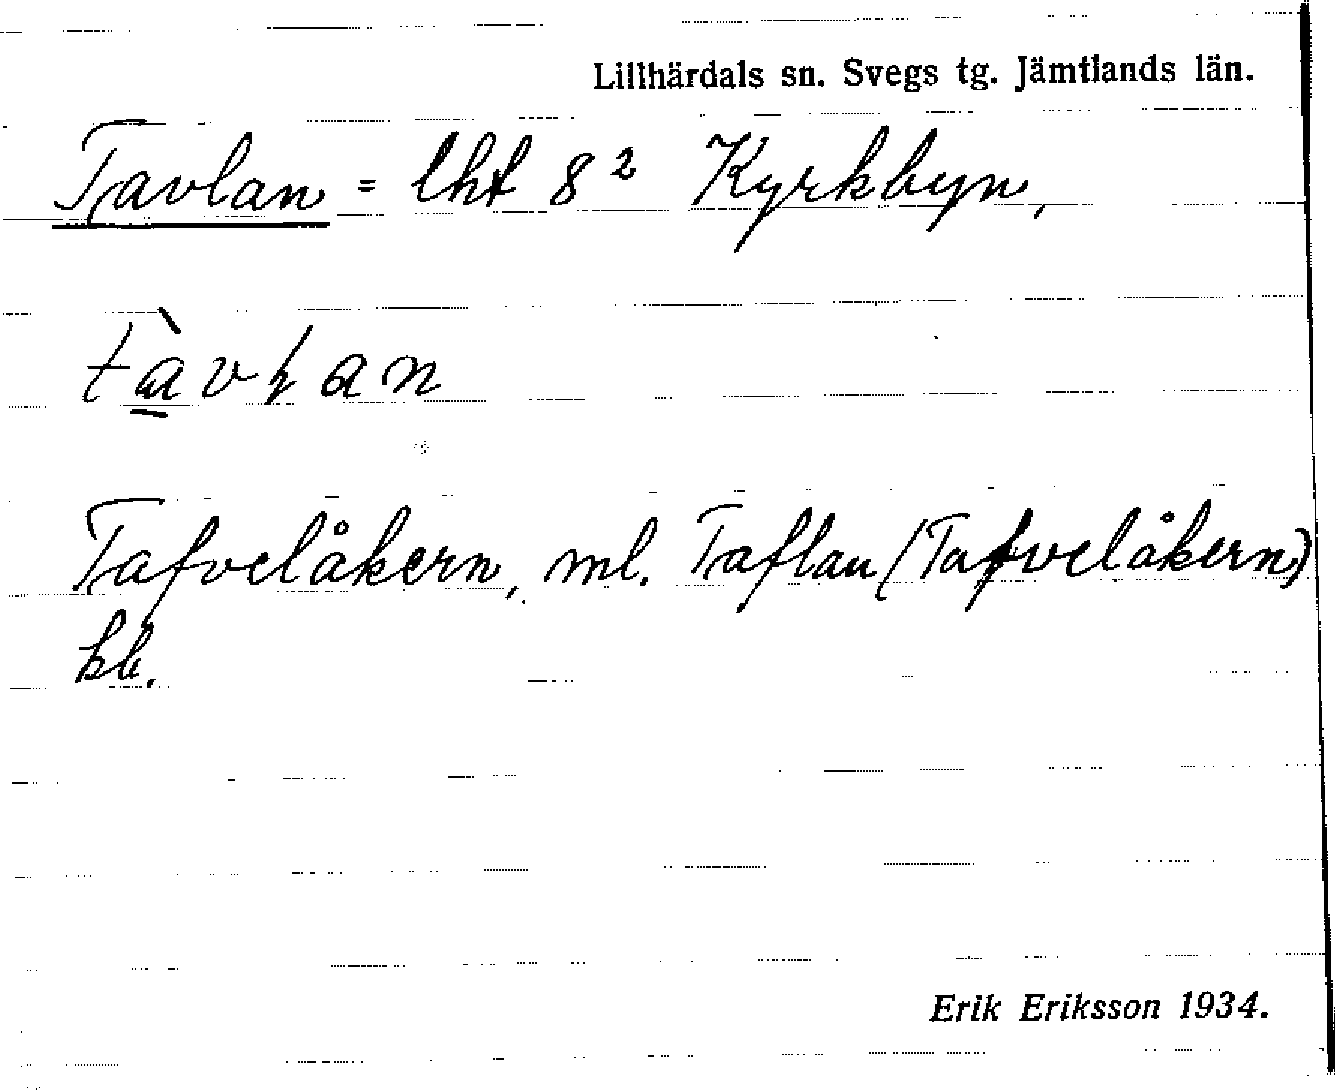 Lillhärdals sn. Svegs tg. Jämtlands län.
Tavlan = lht 8² Kyrkbyn,
tàvłan
Tafvelåkern, ml. Taflan (Tafvelåkern)
kb.
Erik Eriksson 1934.